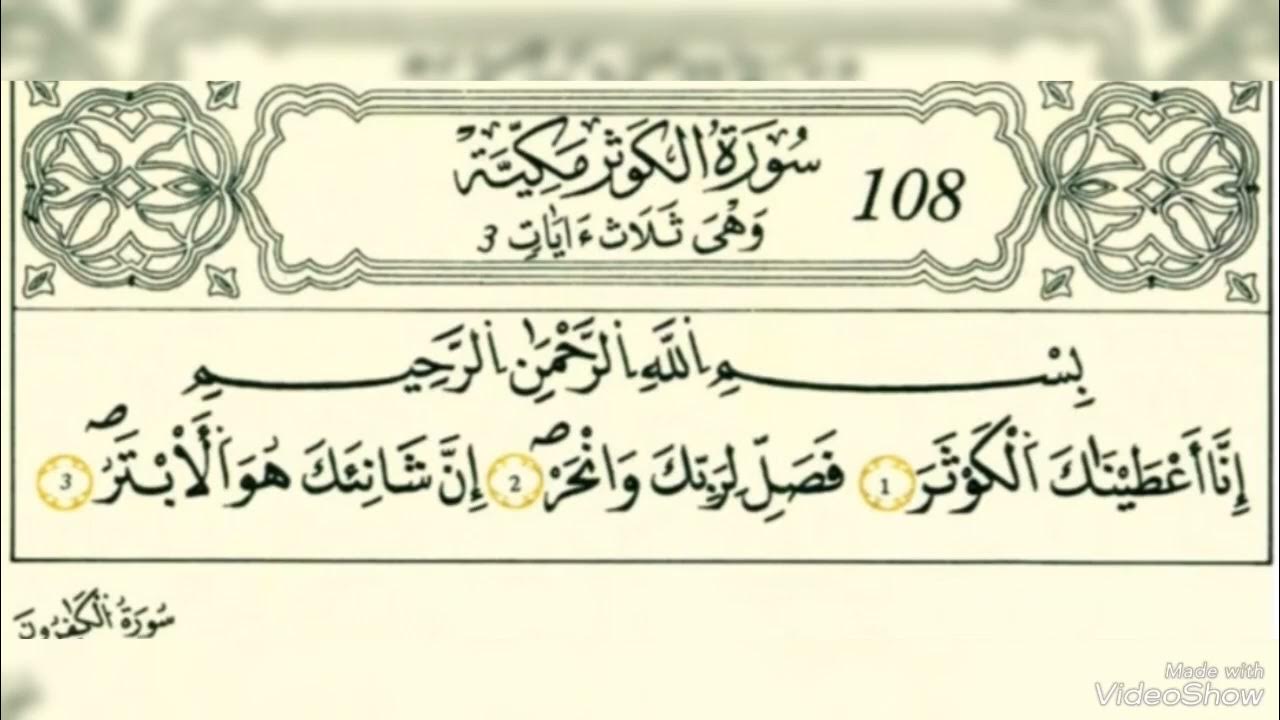 سُورَةُ الْكَوْثَرِ مَكِّيَّةٌ
108
وَهْىَ ثَلَاثُ ءَايَاتٍ 3
بِسْمِ اِ۬للَّهِ اِ۬لرَّحْمَٰنِ اِ۬لرَّحِيمِ
إِنَّا أَعْطَيْنَٰكَ اَ۬لْكَوْثَرَ 1 فَصَلِّ لِرَبِّكَ وَانْحَرْ 2 إِنَّ شَانِئَكَ هُوَ اَ۬لْأَبْتَرُ 3
سُورَةُ الْكَٰفِرُونَ
Made with
VideoShow